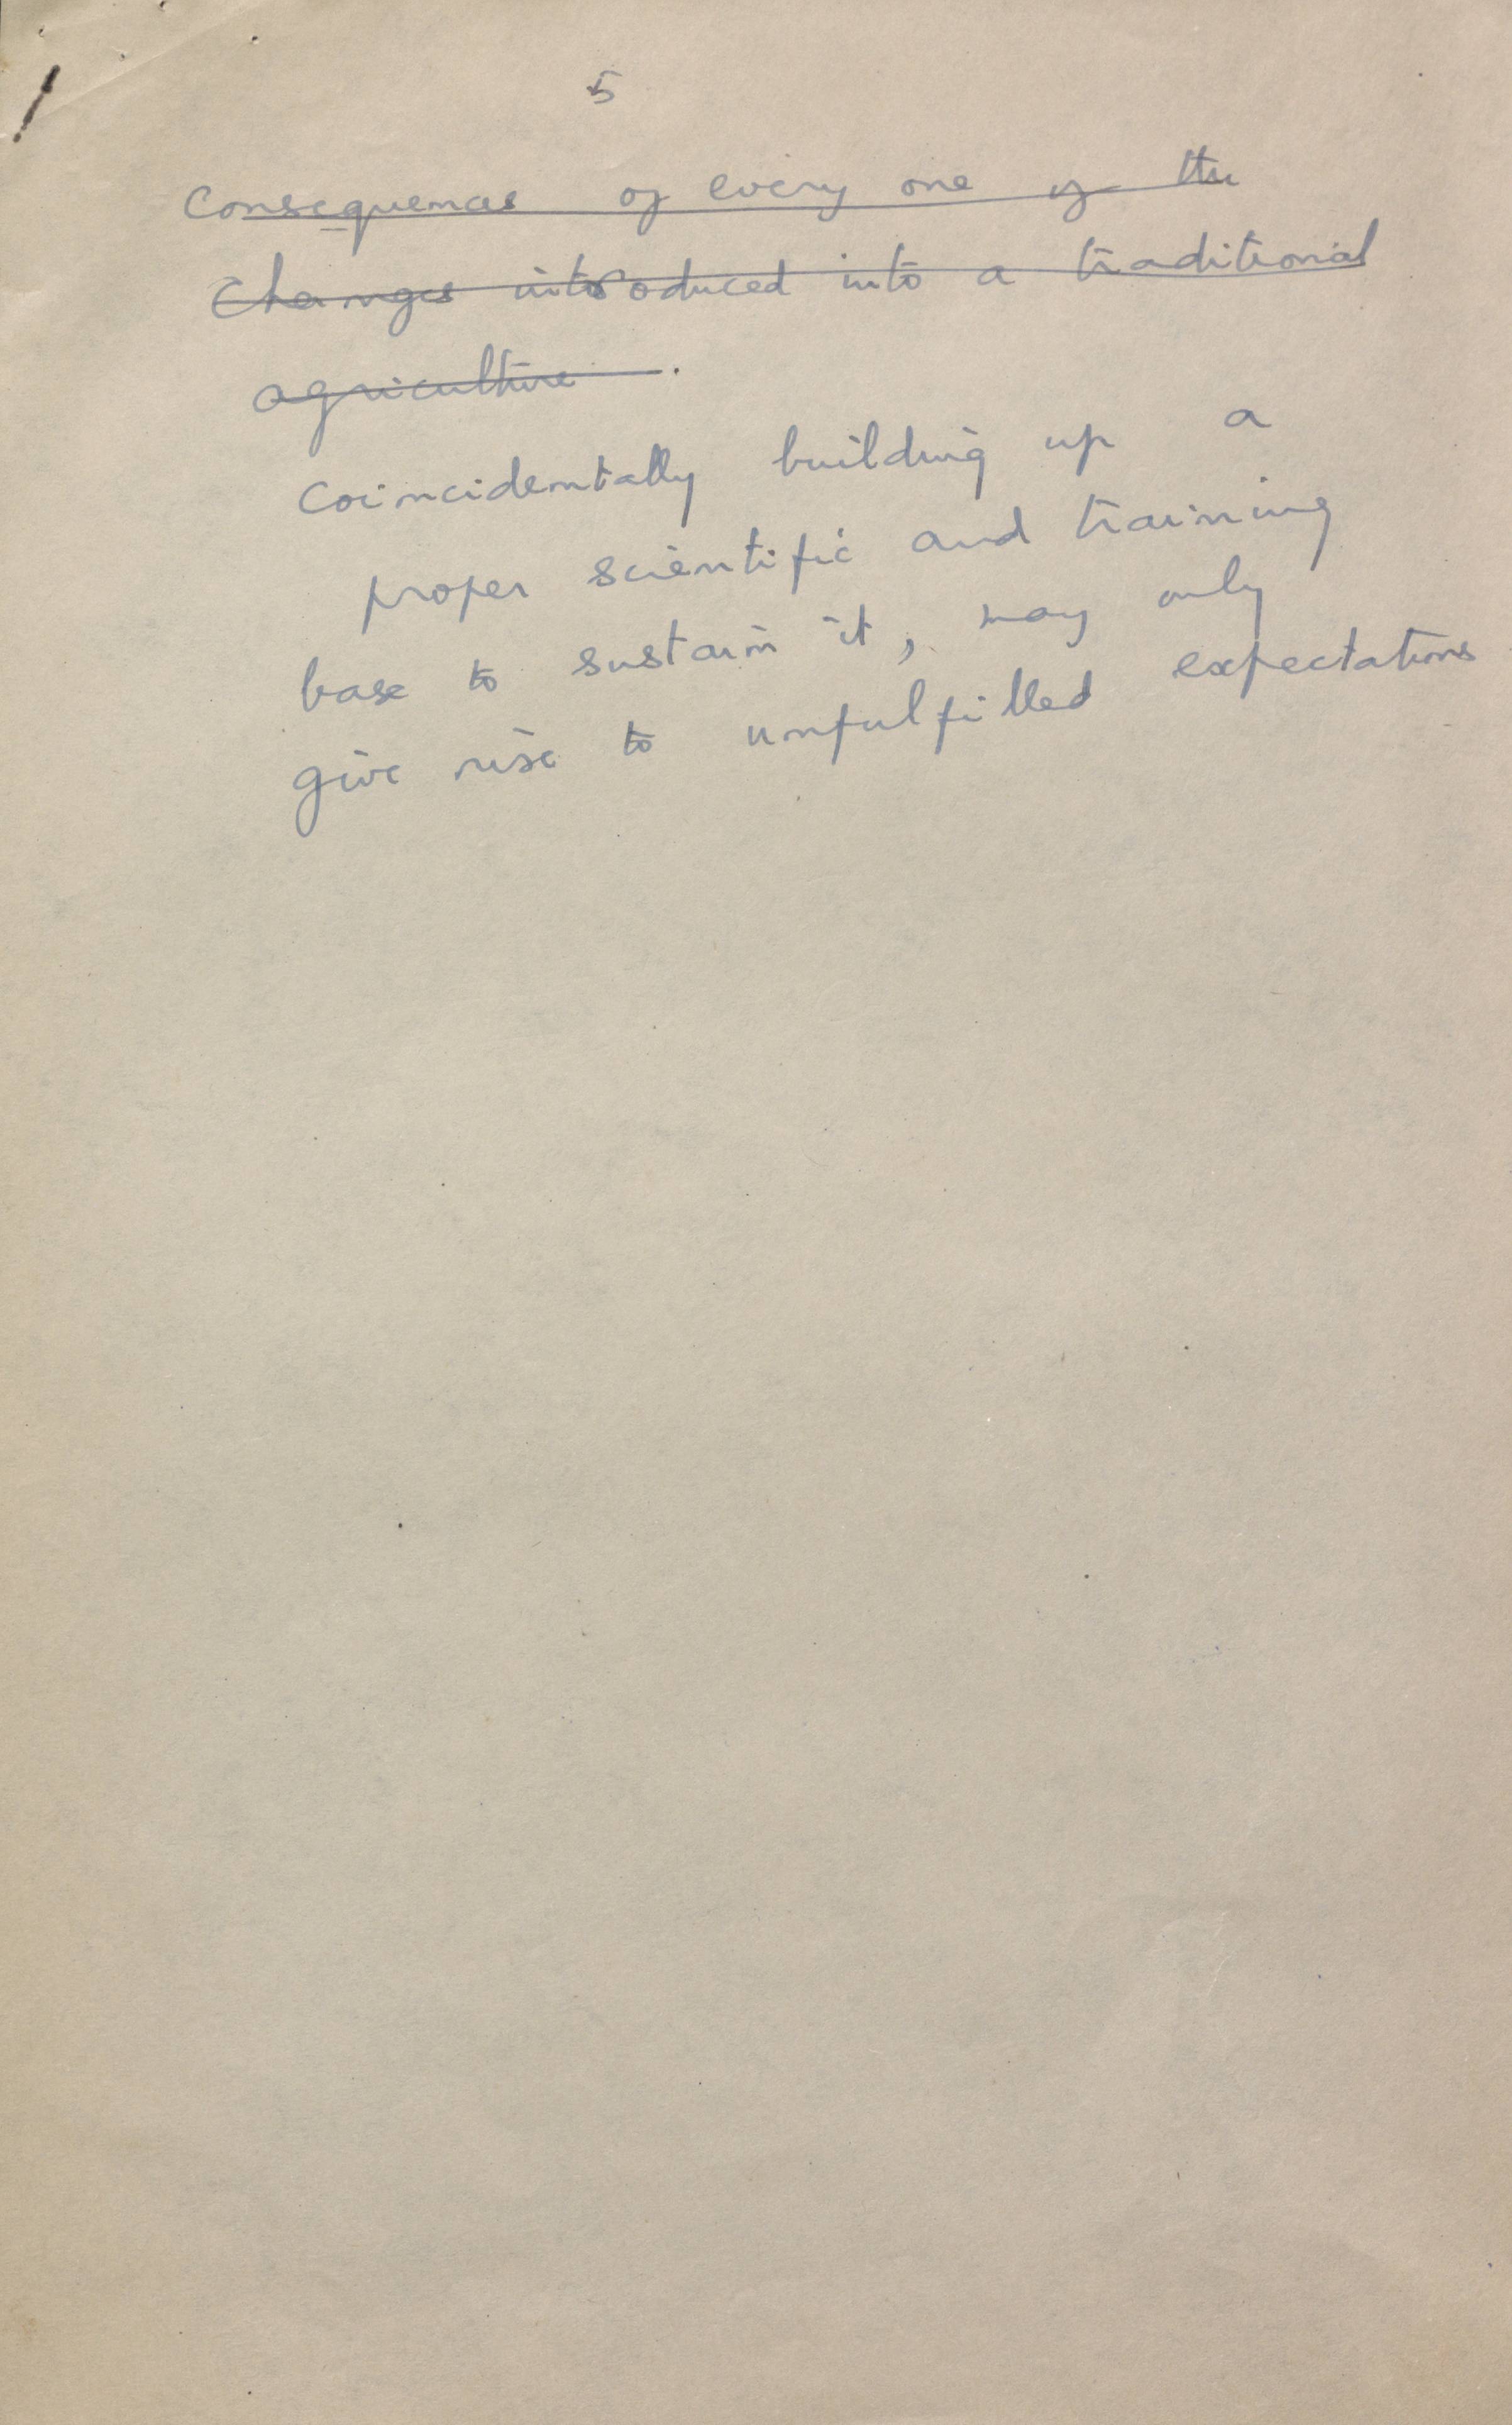 5
Consequences of every one of the
changes introduced into a traditional
agriculture.
Coincidentally building up a
proper scientific and training
base to sustain it, may only
give rise to unfulfilled expectations